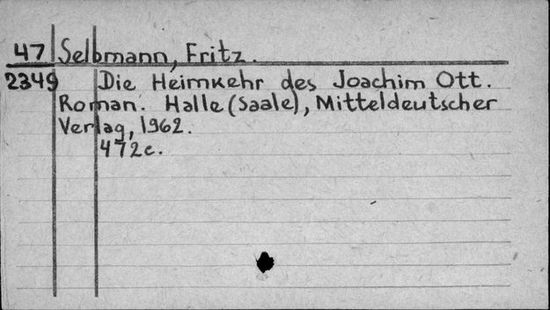 47 Selbmann, Fritz.
2349 Die Heimkehr des Joachim Ott.
Roman. Halle (Saale), Mitteldeutscher
Verlag, 1962.
472c.